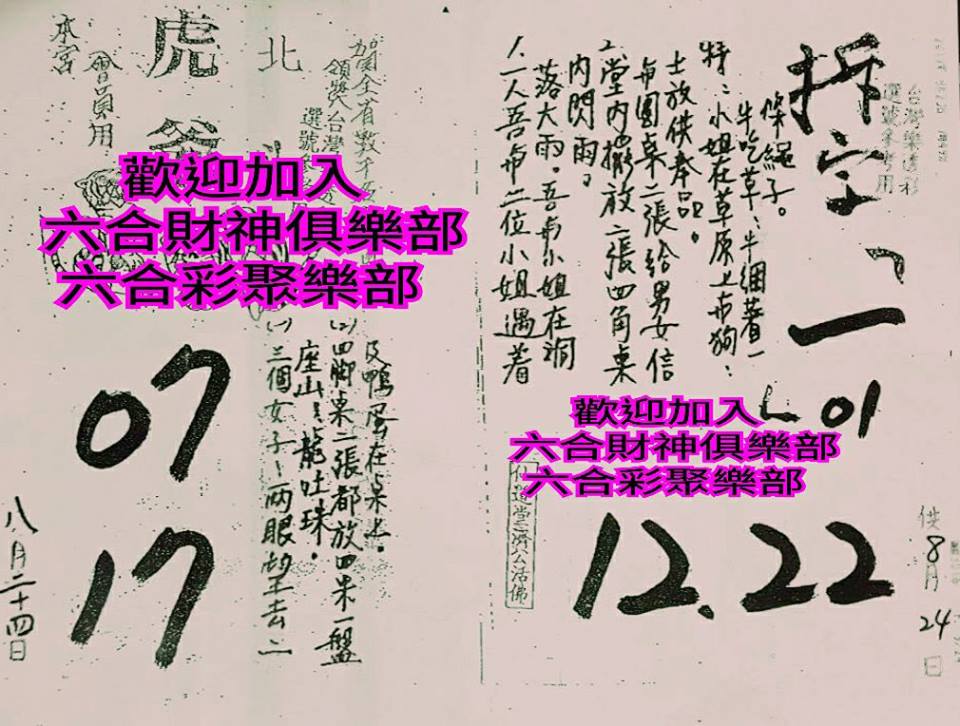 拆字「一」01
12.22
供8月24日
特:小姐在草原上布狗:
牛吃草:牛綑著一
條繩子。
士放供奉品。
布圓桌二張給男女信
2.堂內擺放二張四角桌
內閃雨。
落大雨。吾布小姐在洞
1.一人吾布二位小姐遇著
仙道堂濟公活佛
歡迎加入
六合財神俱樂部
六合彩聚樂部
北
虎爺
本宮
會員用
領獎台灣
選號
(1)三個女子:兩眼望去二
座山:龍吐珠。
(2)四腳桌二張都放四朱一盤
及鴨蛋在桌上。
07
17
八月二十四日
歡迎加入
六合財神俱樂部
六合彩聚樂部